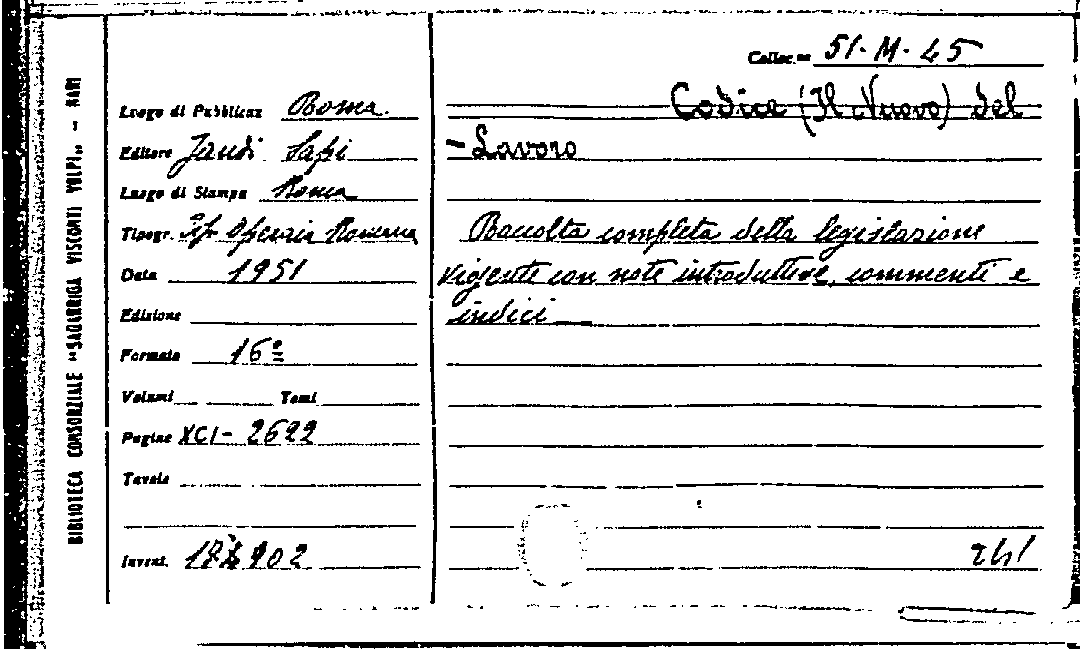 BIBLIOTECA CONSORZIALE "SAGARRIGA VISCONTI VOLPI" - BARI
Colloc.ne 51-M-45
Luogo di Pubblicaz Roma.
Editore Jandi Sapi
Luogo di Stampa Roma
Tipogr. Tip Operaia Romana
Data 1951
Edizione
Formato 16º
Volumi Tomi
Pagine XCI-2622
Tavole
Invent.
Codice (Il Nuovo) del
-Lavoro
Raccolta completa della legislazione
vigente con note introduttive, commenti e
indici